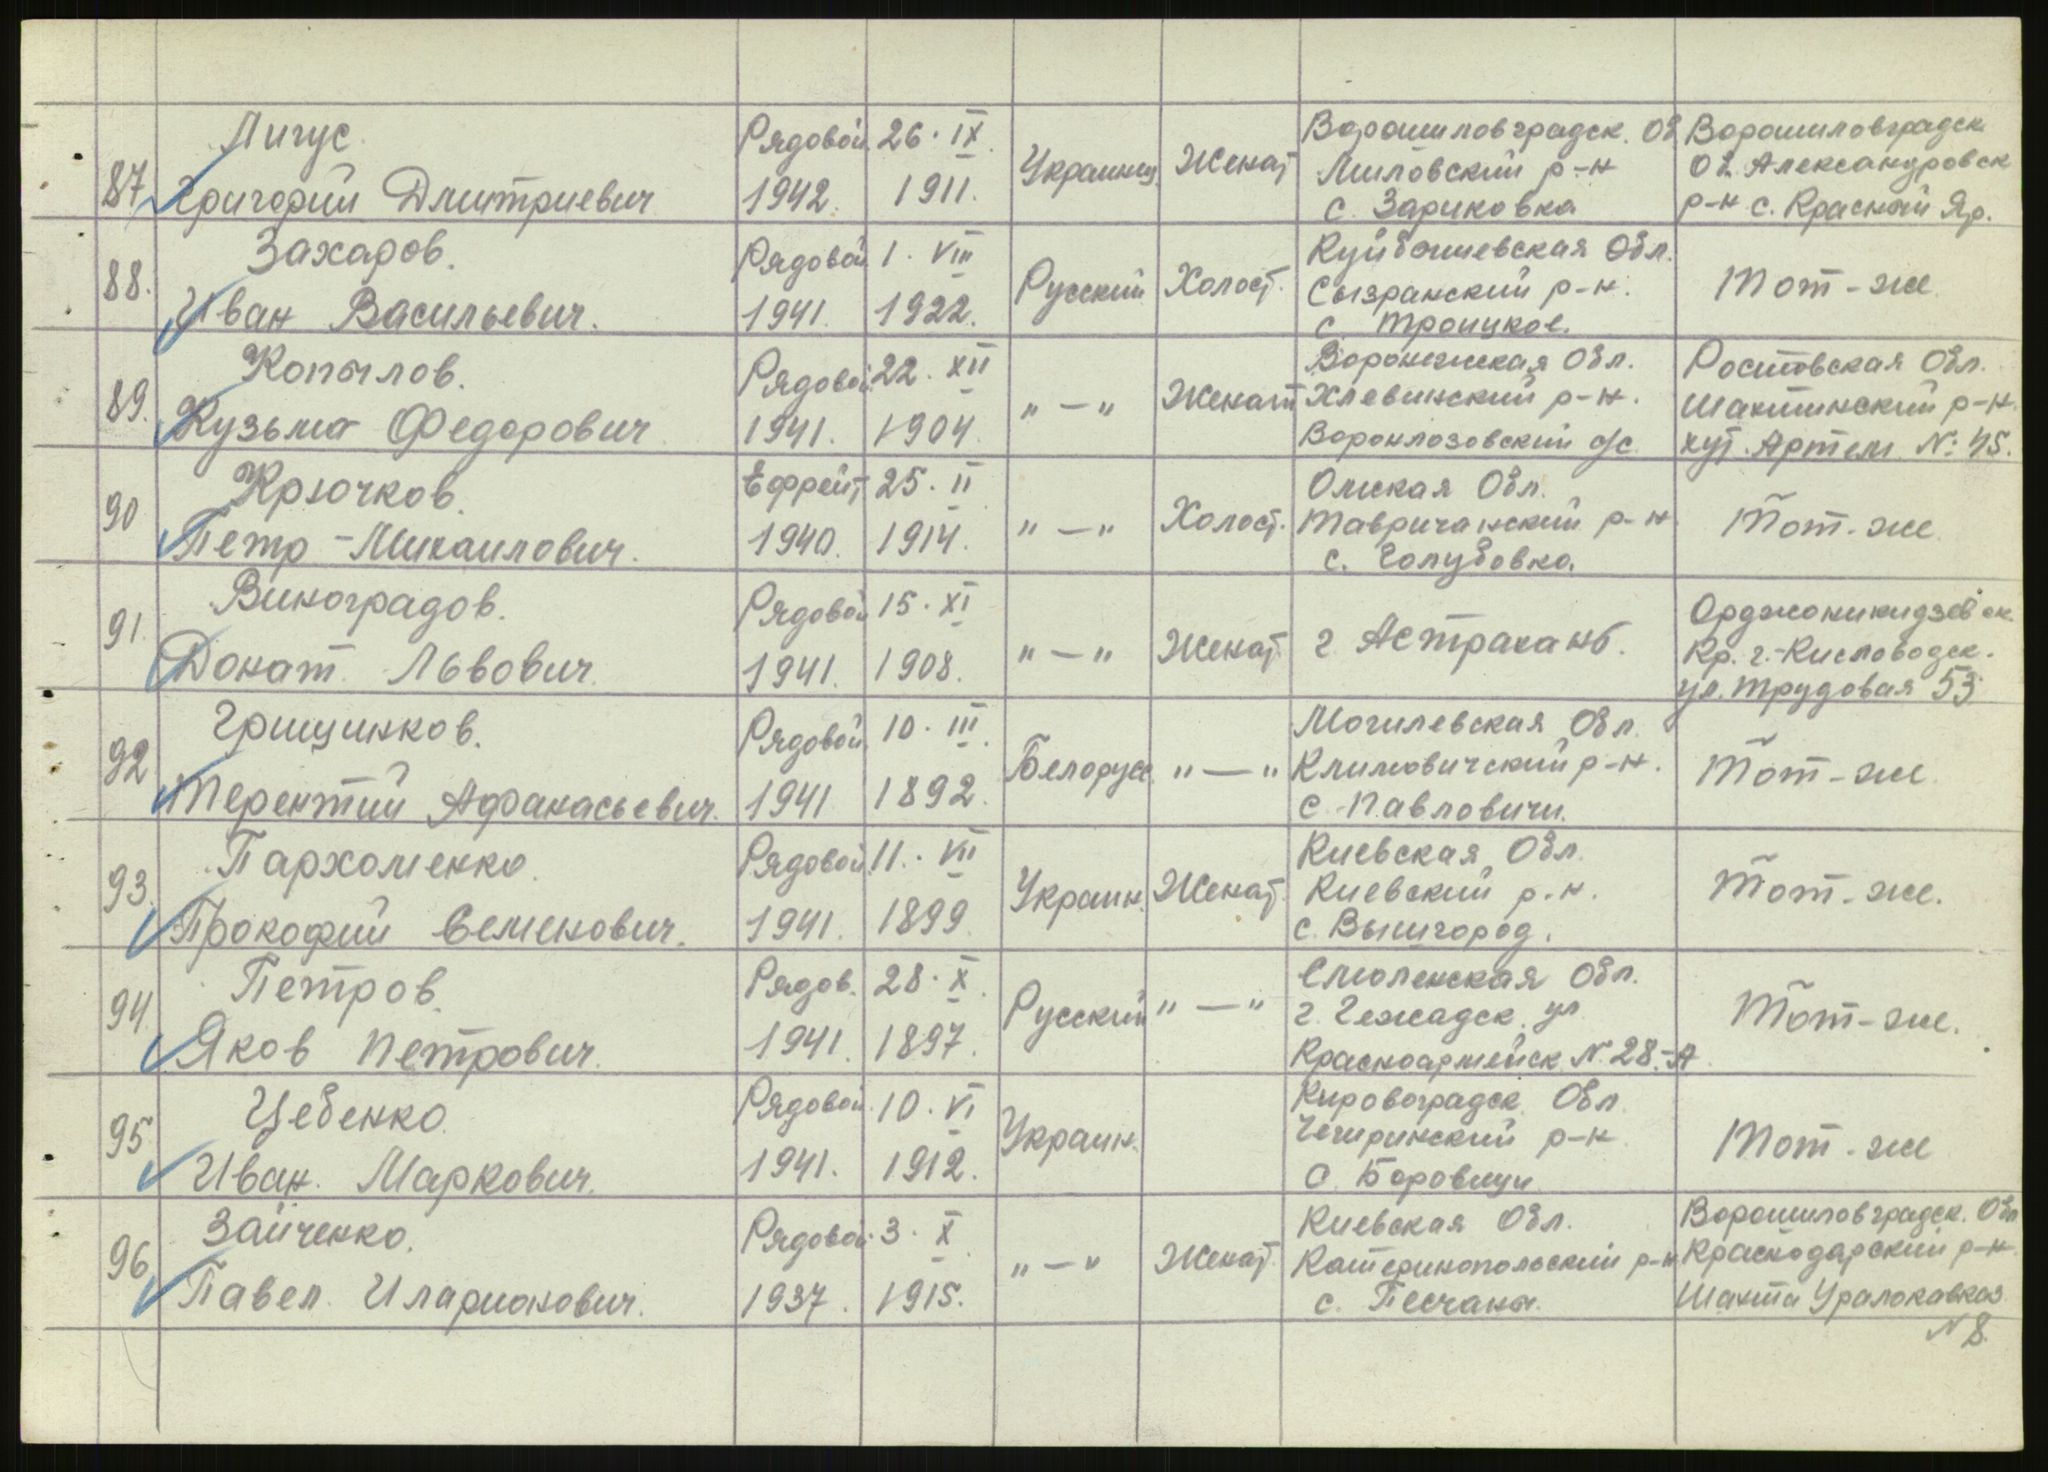 87. Лигус. Рядовой 26. IX. Украинц. Женат Ворошиловградск. Об Ворошиловградск.
Григорий Дмитриевич 1942. 1911. Миловский р-н Об. Александровск
с. Зариковка р-н с. Красный Яр.
88. Захаров. Рядовой 1. VIII Русский Холост. Куйбышевская Обл. Тот-же
Иван Васильевич. 1941. 1922. Сызранский р-н.
с. Троицкое.
89. Копылов. Рядовой 22. XII "—" Женат Воронежская Обл. Ростовская Обл.
Кузьма Федорович 1941. 1904. Хлевинский р-н. Шахтинский р-н.
Воронлозовский с/с. хут. Артем № 45.
90 Крючков. Ефрейт 25. II "—" Холост. Омская Обл. Тот-же
Петр-Михаилович. 1940. 1914. Тавричанский р-н
с. Голубовка.
91. Виноградов. Рядовой 15. XI "—" Женат г. Астрахань. Орджоникидзевск.
Донат Львович. 1941. 1908. Кр. г.-Кисловодск.
ул. Трудовая 53
92 Грищинков. Рядовой 10. III. Белорусс "—" Могилевская Обл. Тот-же
Терентий Афанасьевич. 1941 1892. Климовичский р-н.
с. Павловичи.
93. Пархоменко. Рядовой 11. VII Украин. Женат. Киевская Обл. Тот-же.
Прокофий Семенович. 1941. 1899. Киевский р-н.
с. Вышгород.
94. Петров. Рядов. 28. X. Русский "—" Смоленская Обл. Тот-же.
Яков Петрович. 1941. 1897. г. Гежадск. ул
Красноармейск № 28-А
95 Цебенко. Рядовой 10. VI Украин. Кировоградск. Обл. Тот-же
Иван. Маркович. 1941. 1912. Чигиринский р-н
с. Боровици
96 Зайченко. Рядовой 3. X "—" Женат. Киевская Обл. Ворошиловградск. Обл
Павел Иларионович. 1937. 1915. Катеринопольский р-н Краснодарский р-н.
с. Песчана. Шахта Уралокавказ
№ 8.